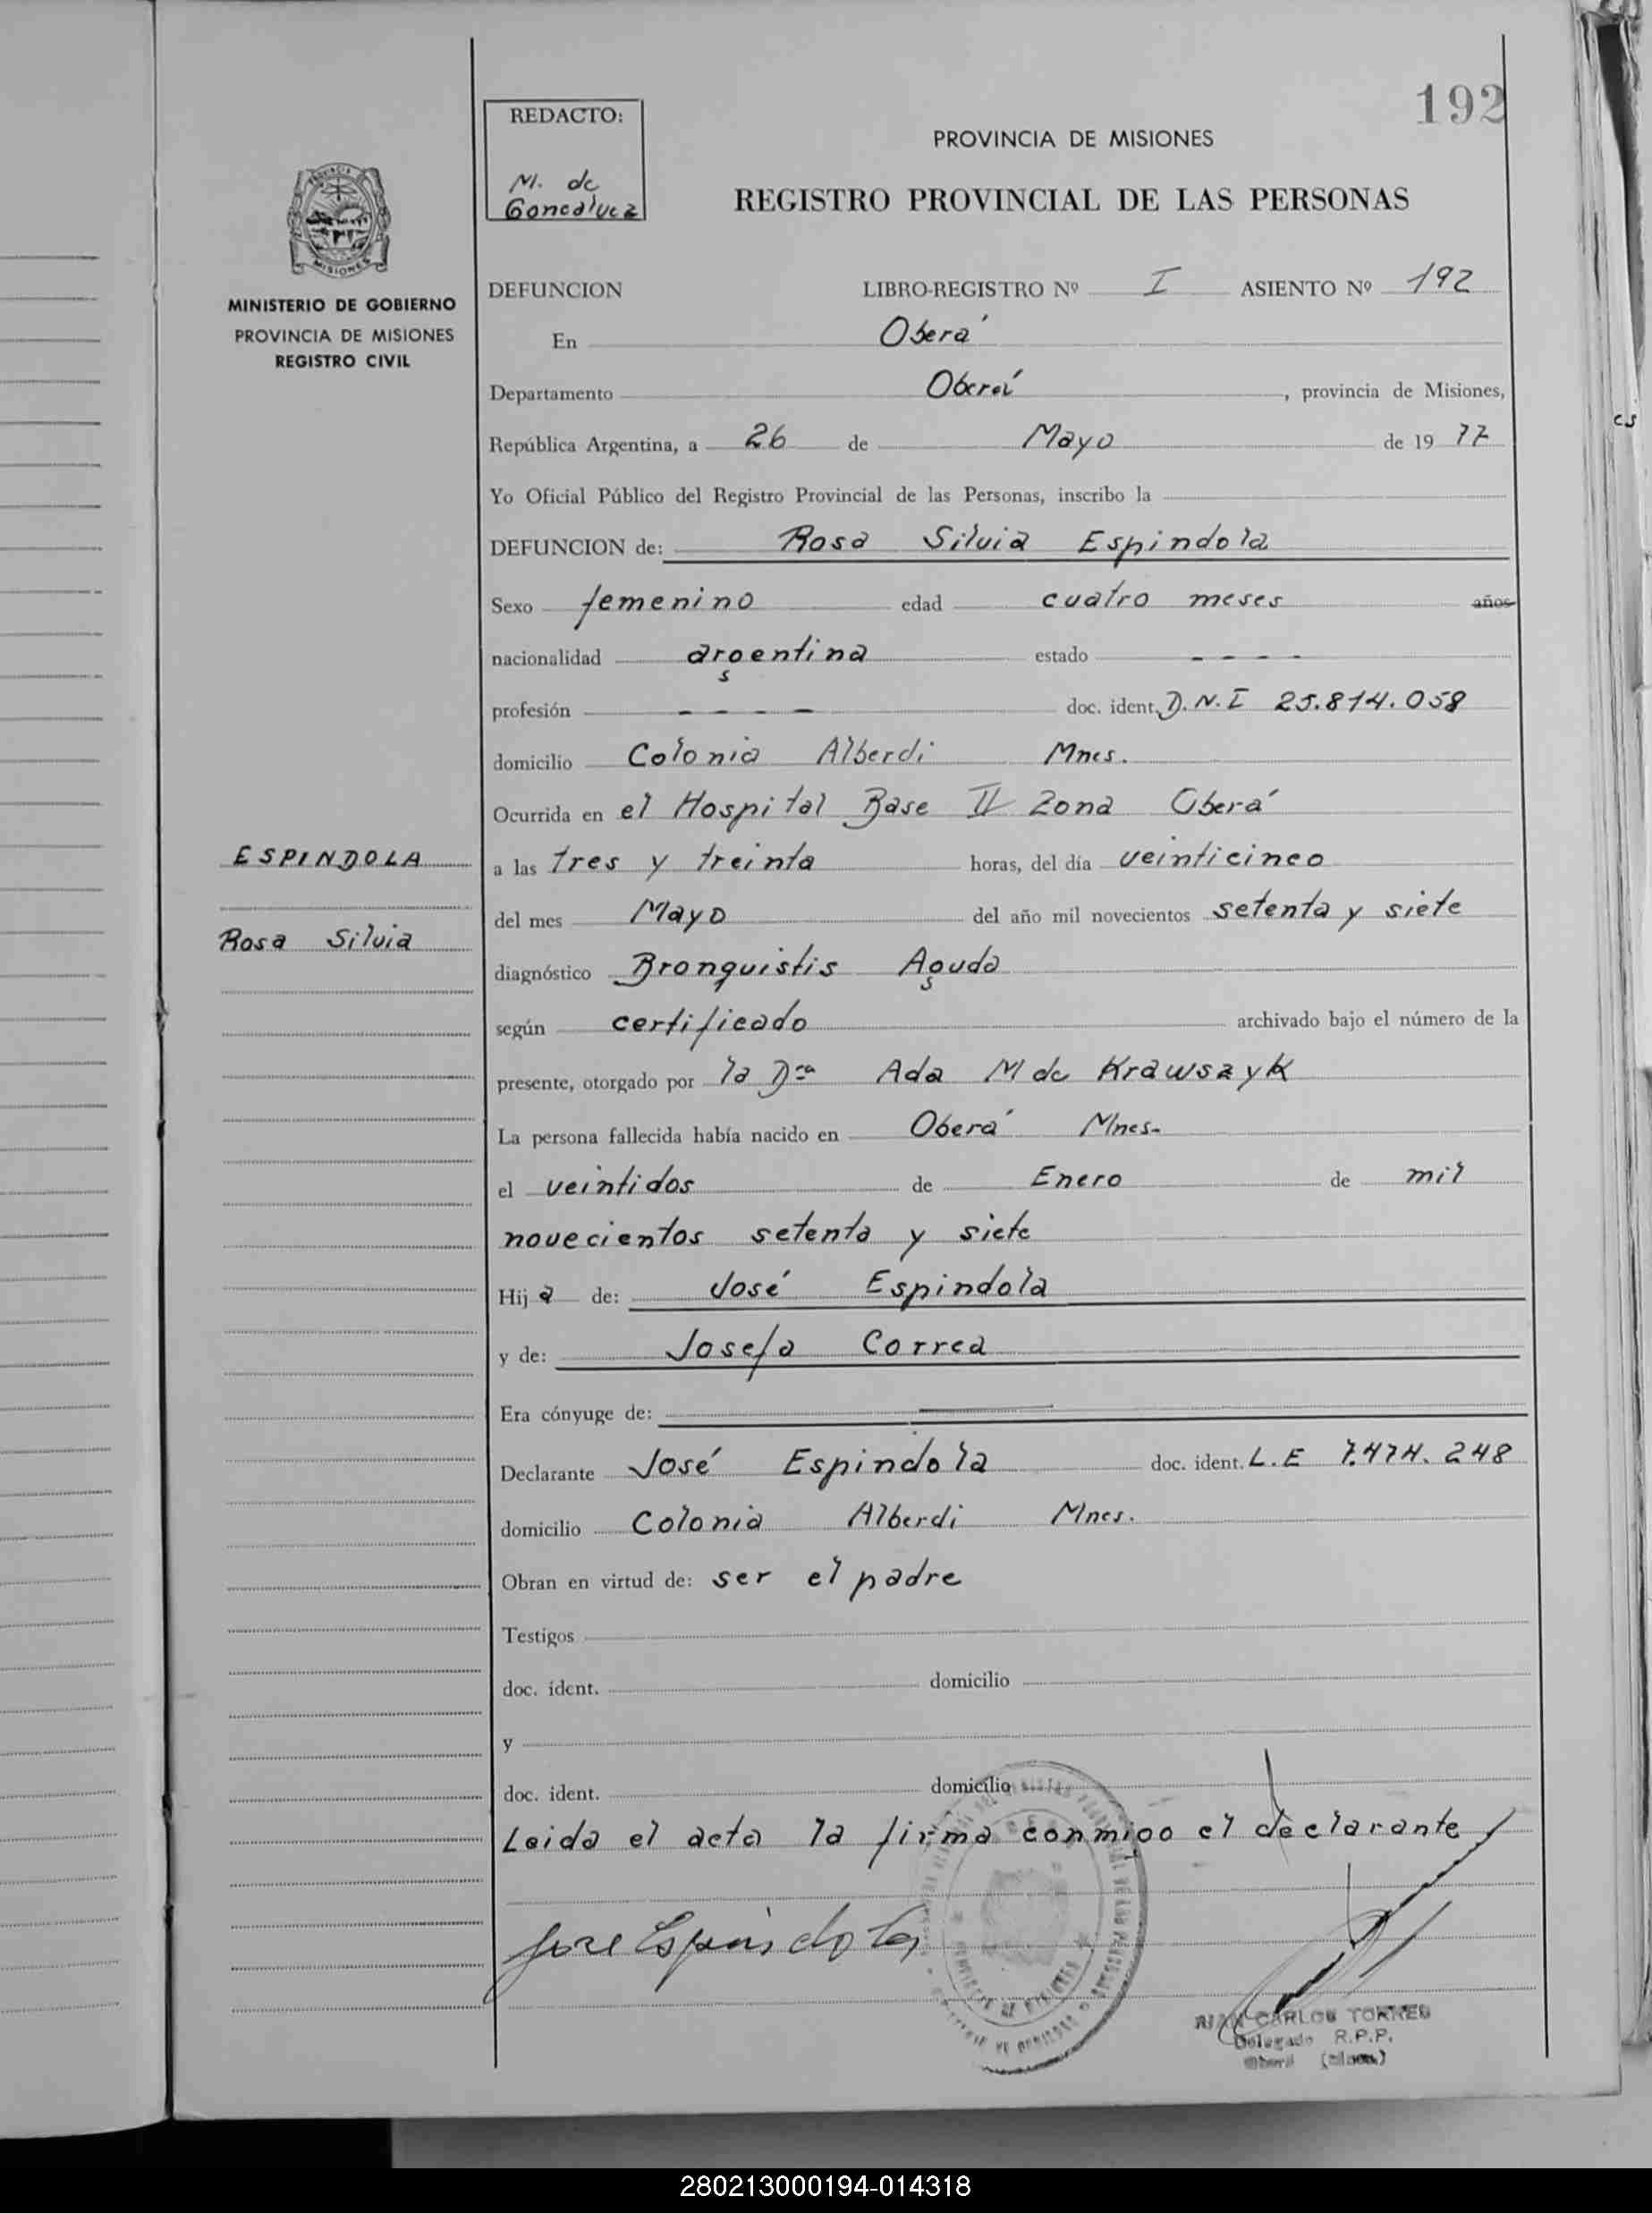 192
REDACTO:
M. de
Goncalvez
PROVINCIA DE MISIONES
REGISTRO PROVINCIAL DE LAS PERSONAS
PROVINCIA DE
MISIONES
MINISTERIO DE GOBIERNO
PROVINCIA DE MISIONES
REGISTRO CIVIL
DEFUNCION LIBRO-REGISTRO Nº I ASIENTO Nº 192
En Oberá
Departamento Oberá, provincia de Misiones,
República Argentina, a 26 de Mayo de 19 77
Yo Oficial Público del Registro Provincial de las Personas, inscribo la
DEFUNCION de: Rosa Silvia Espindola
Sexo femenino edad cuatro meses años
nacionalidad argentina estado - - - -
profesión - - - - doc. ident. D.N.I 25.814.058
domicilio Colonia Alberdi Mnes.
Ocurrida en el Hospital Base II Zona Oberá
ESPINDOLA
a las tres y treinta horas, del día veinticinco
del mes Mayo del año mil novecientos setenta y siete
Rosa Silvia
diagnóstico Bronquistis Aguda
según certificado archivado bajo el número de la
presente, otorgado por la Dra Ada M de Krawszyk
La persona fallecida había nacido en Oberá Mnes-
el veintidos de Enero de mil
novecientos setenta y siete
Hija de: José Espindola
y de: Josefa Correa
Era cónyuge de:
Declarante José Espindola doc. ident. L.E 7.474.248
domicilio Colonia Alberdi Mnes.
Obran en virtud de: ser el padre
Testigos
doc. ident. domicilio
y
doc. ident. domicilio
Leida el acta la firma conmigo el declarante
Jose Espindola
CARLOS TORRES
Delegado R.P.P.
Oberá
280213000194-014318